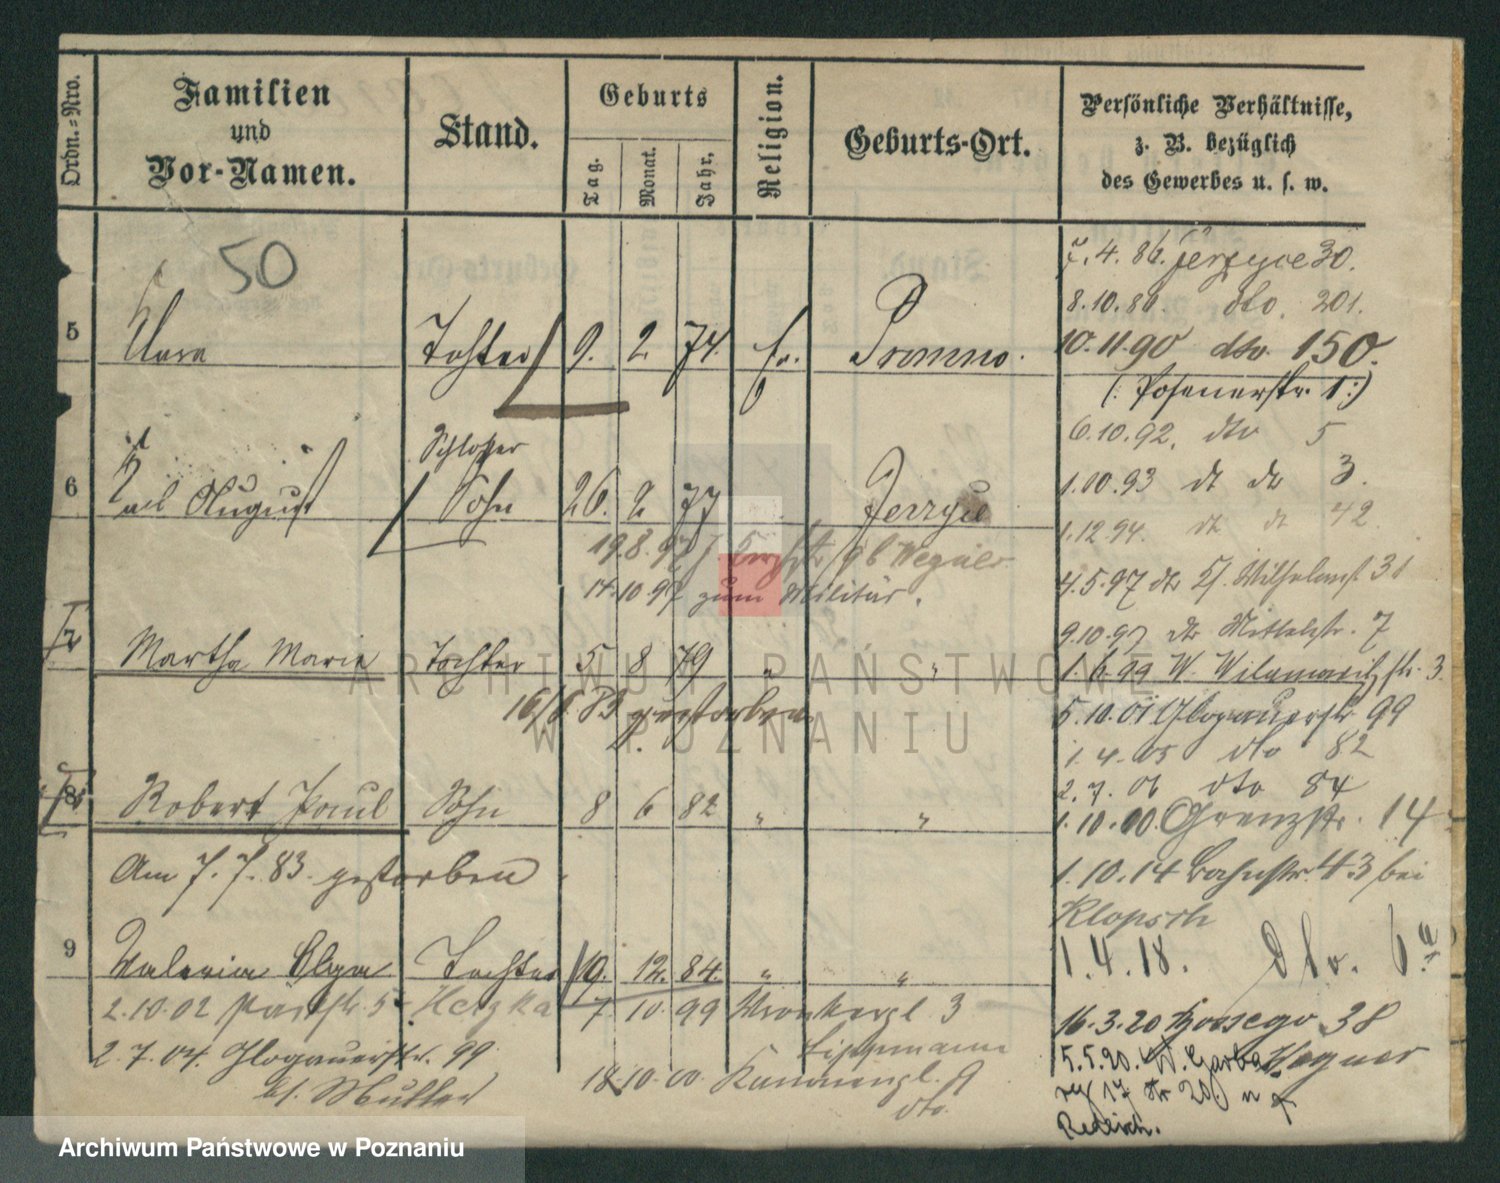 Ordn.-Nro.
Familien
und
Vor-Namen.
Stand.
Geburts
Tag.
Monat.
Jahr.
Religion.
Geburts-Ort.
Persönliche Verhältnisse,
z. B. bezüglich
des Gewerbes u. s. w.
50
5 Clara Tochter 9. 2 74. Promno.
7.4.86. Jerzyce 30.
8.10.86. dto. 201.
10.11.90 dto. 150.
(: Posenerstr. 1 :)
6.10.92. dto 5
Schlosser
6 August Sohn 26. 2 77 Jerzyce
1.10.93 dt de 3.
1.12.94. dt 42
19.8.97 Wegner
14.10.97 zum Militär.
4.5.97 Wilhelmst 31
9.10.97 dto Mittelstr. 7
7 Martha Marie Tochter 5 8 79 " "
1.6.99 W. str. 3
16/8 83 gestorben
5.10.01 Glogauerstr 99
1.4.05 dto 82
2.7.06 dto 84
8 Robert Paul Sohn 8 6 82 " "
1.10.10. Grenzstr. 14
Am 7.7.83. gestorben
1.10.14 Bahnstr. 43 bei
Klopsch
1.4.18. dto. 6a
9 Valeria Olga Tochter 19. 12. 84. " "
2.10.02 5 Hetzka 7 10 99 3
16.3.20 38
2.7.04. Glogauerstr. 99
Lippmann
5.5.20. W. Garba Wagner
bl. Mutter
18.10.00. 9
dto.
17 20
ARCHIWUM PAŃSTWOWE
W POZNANIU
Archiwum Państwowe w Poznaniu